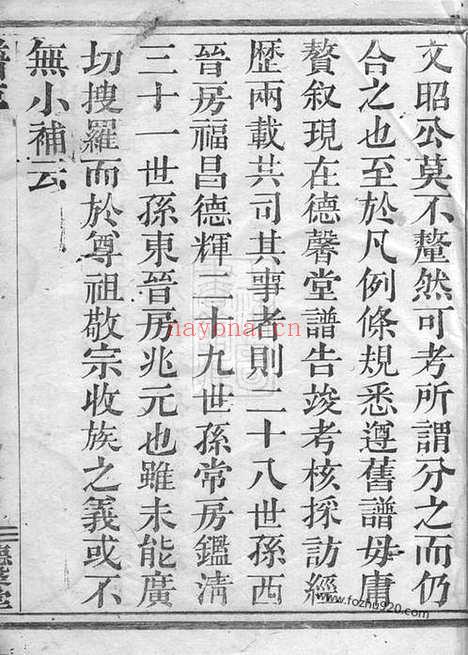 文昭公莫不釐然可考所謂分之而仍
合之也至於凡例條規悉遵舊譜毋庸
贅叙現在德馨堂譜告竣考核採訪經
歷兩載共司其事者則二十八世孫西
晉房福昌德輝二十九世孫常房鑑清
三十一世孫東晉房兆元也雖未能廣
切搜羅而於尊祖敬宗收族之義或不
無小補云
nayona.cn
www.fozhu920.com